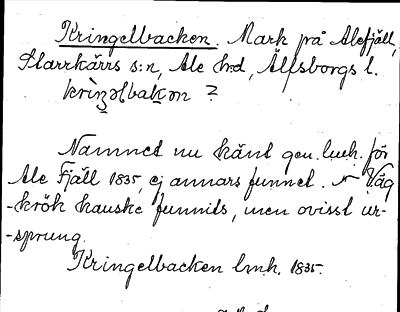 Kringelbacken. Mark på Alefjäll,
Starrkärrs s:n, Ale hrd, Älfsborgs l.
kriŋəlbakən ?
Namnet nu känt gen. lmk. för
Ale Fjäll 1835, ej annars funnet. Väg
-krök kanske funnits, men ovisst ur-
-sprung.
Kringelbacken lmk. 1835.